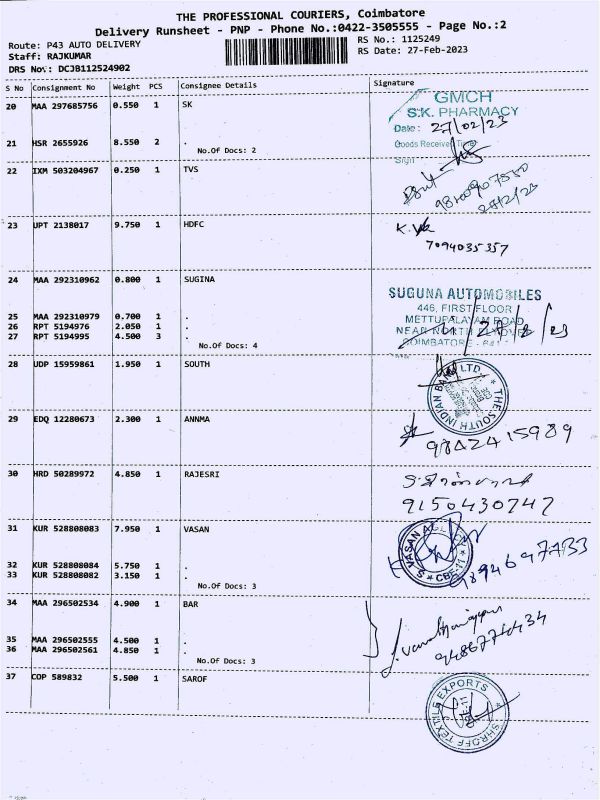 THE PROFESSIONAL COURIERS, Coimbatore
Delivery Runsheet - PNP - Phone No.:0422-3505555 - Page No.:2
Route: P43 AUTO DELIVERY
RS No.: 1125249
Staff: RAJKUMAR
RS Date: 27-Feb-2023
DRS No: DCJB112524902
S No Consignment No Weight PCS Consignee Details Signature
20 MAA 297685756 0.550 1 SK
GMCH
S.K. PHARMACY
Date: 27/02/23
21 HSR 2655926 8.550 2 .
Goods Received
No.Of Docs: 2
Sign
22 IXM 503204967 0.250 1 TVS
23 UPT 2138017 9.750 1 HDFC
7094035357
24 MAA 292310962 0.800 1 SUGINA
SUGUNA AUTOMOBILES
446, FIRST FLOOR
25 MAA 292310979 0.700 1 .
METTUPALAYAM ROAD
26 RPT 5194976 2.050 1 .
27 RPT 5194995 4.500 3 .
No.Of Docs: 4
COIMBATORE
28 UDP 15959861 1.950 1 SOUTH
THE SOUTH INDIAN BANK LTD.
29 EDQ 12280673 2.300 1 ANNMA
9842415989
30 HRD 50289972 4.850 1 RAJESRI
9150430747
31 KUR 528808083 7.950 1 VASAN
32 KUR 528808084 5.750 1 .
33 KUR 528808082 3.150 1 .
No.Of Docs: 3
9894697733
34 MAA 296502534 4.900 1 BAR
35 MAA 296502555 4.500 1 .
36 MAA 296502561 4.850 1 .
No.Of Docs: 3
37 COP 589832 5.500 1 SAROF
SHROFF TEXTILE EXPORTS